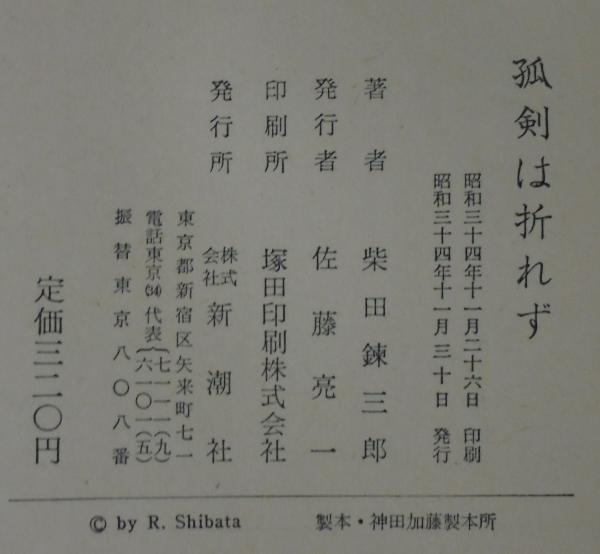 孤剣は折れず
昭和三十四年十一月二十六日 印刷
昭和三十四年十一月三十日 発行
著者 柴田錬三郎
発行者 佐藤亮一
印刷所 塚田印刷株式会社
発行所 株式会社 新潮社
東京都新宿区矢来町七一
電話東京(34)代表{七一一一(九)
六一〇一(五)
振替東京八〇八番
定価三二〇円
© by R. Shibata
製本・神田加藤製本所